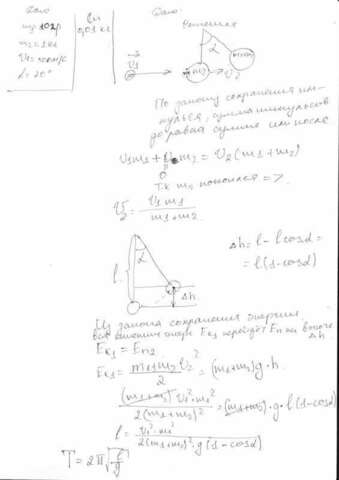 Дано:
m₁=10г
0,01 кг
m₂=1кг
α=20°
Решение
α
V₁
V₂
По закону сохранения им-
пульса, сумма импульсов
до равна сумме имп после
V₁m₁ + V₂m₂ = V₂(m₁+m₂)
0
т.к m₂ покоился =>
V₂ = V₁m₁ / m₁+m₂
l
α
Δh
Δh = l - l cosα =
= l(1-cosα)
Из закона сохранения энергии
вся Eк₁ перейдёт Eп на высоте Δh
Eк₁ = Eп₂
Eк₁ = m₁+m₂ V₂² / 2 = (m₁+m₂)g·h
(m₁+m₂) V₁²·m₁² / 2(m₁+m₂)² = (m₁+m₂)·g·l(1-cosα)
l = V₁²·m₁² / 2(m₁+m₂)²·g(1-cosα)
T = 2π√l/g